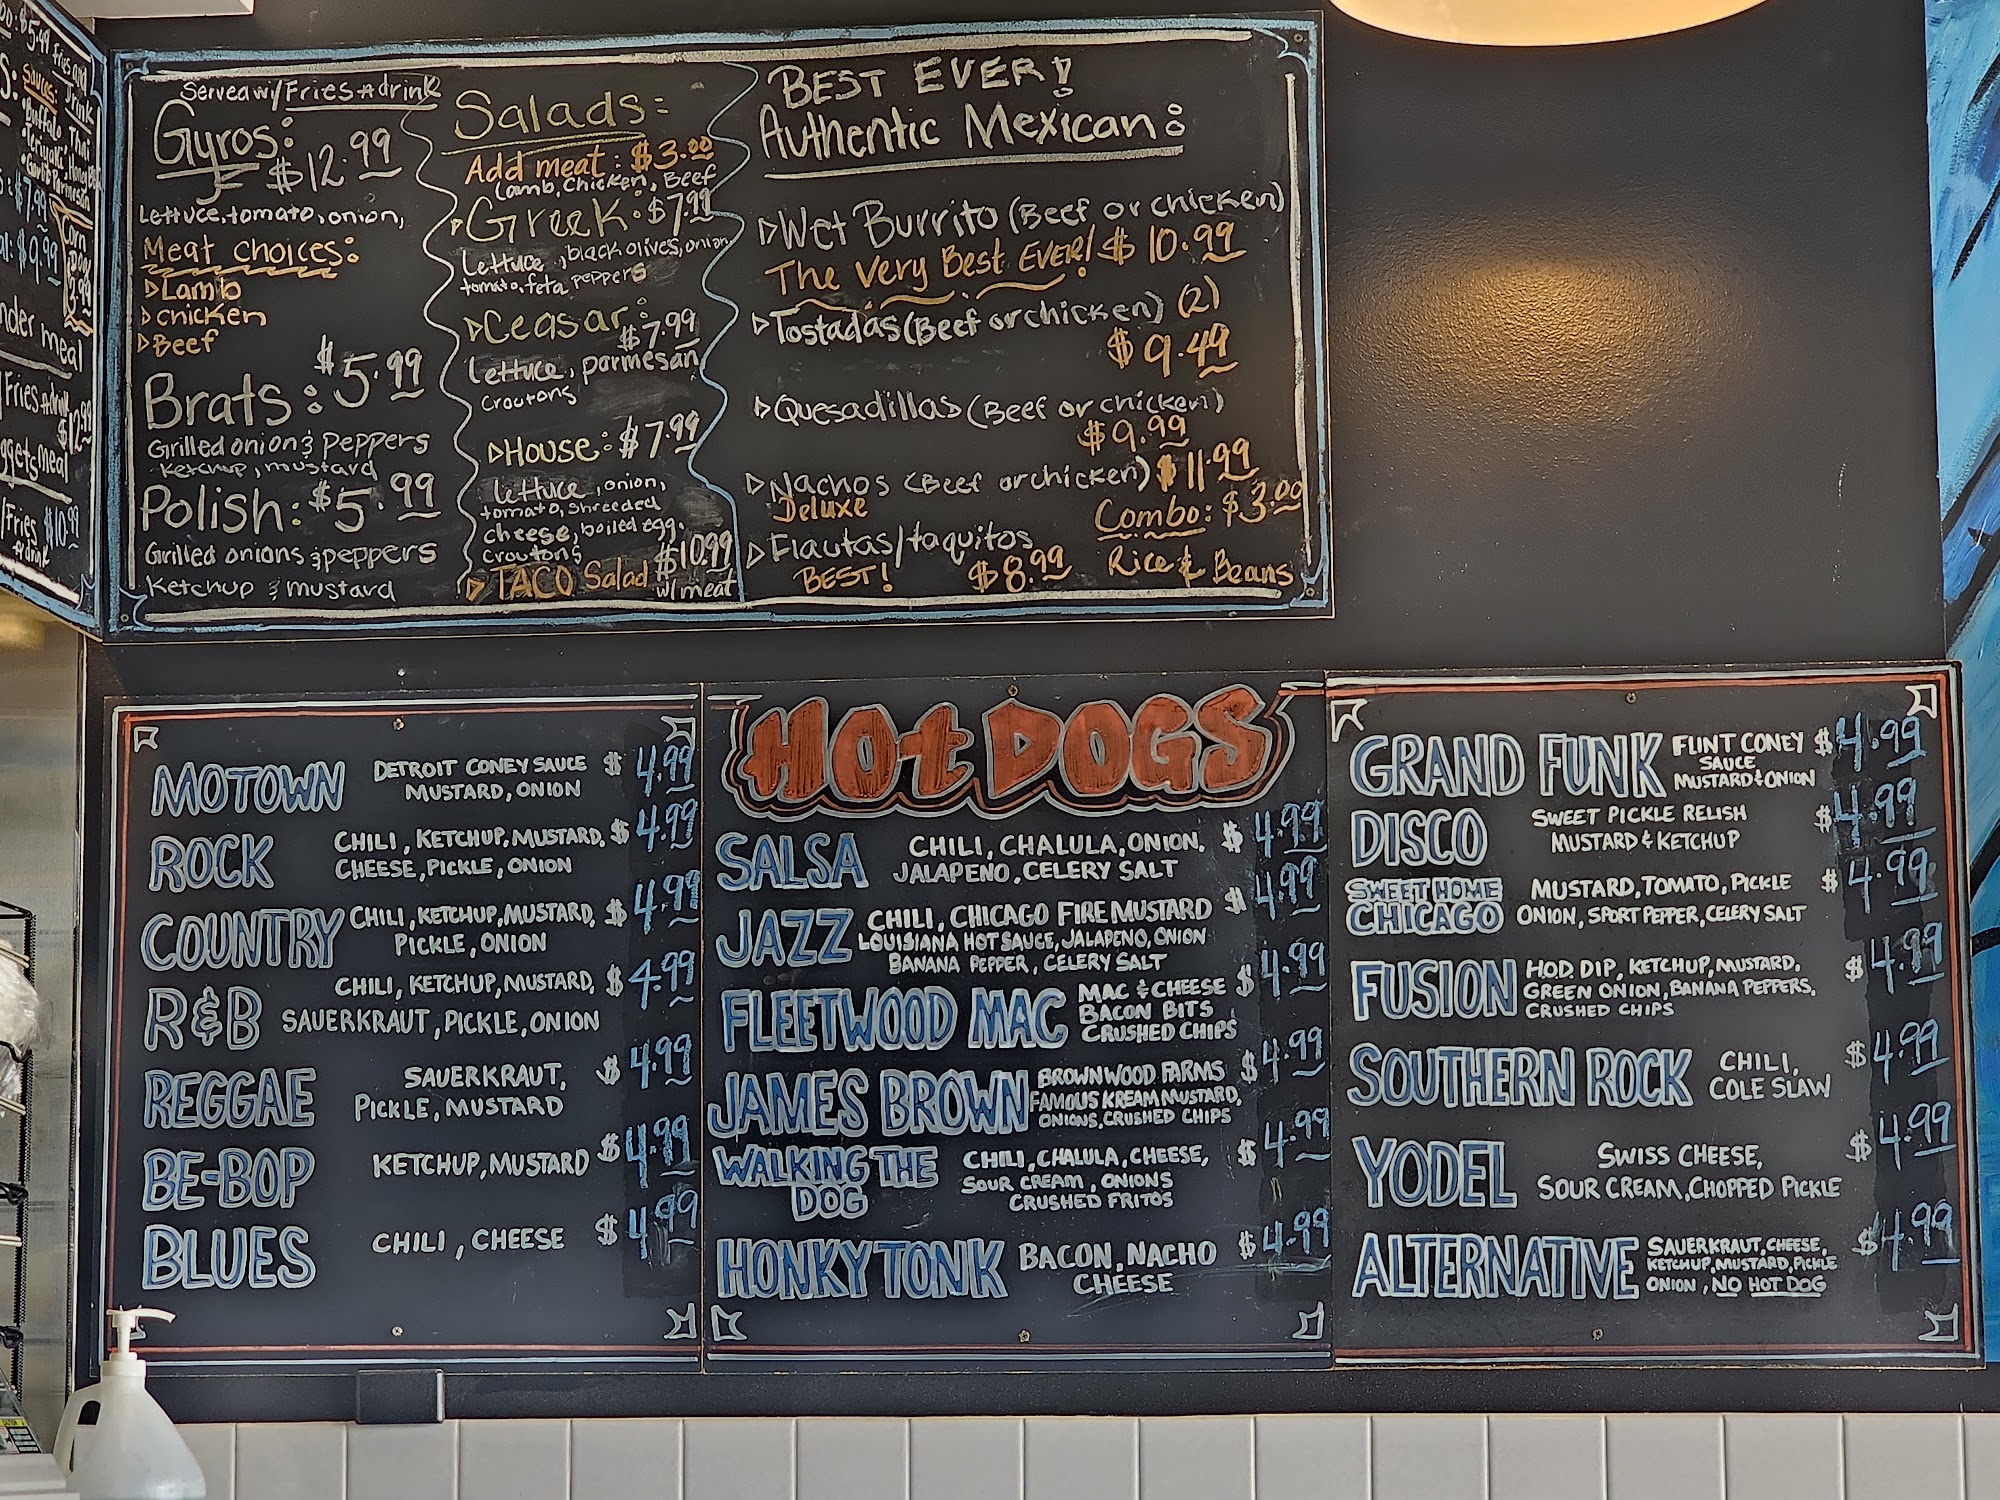 $5.49 Fries and
Drink
Sauces:
$7.99
$9.99
Corn
Dog
3.99
meal
Fries
$12.99
meal
Fries $10.99
Served w/ Fries & drink
Gyros:
$12.99
Lettuce, tomato, onion,
Meat choices:
Lamb
chicken
Beef
Brats: $5.99
Grilled onion & peppers
Ketchup, mustard
Polish: $5.99
Grilled onions & peppers
Ketchup & mustard
Salads:
Add meat: $3.00
Lamb, Chicken, Beef
Greek: $7.99
Lettuce, black olives, onion
tomato, feta peppers
Ceasar:
$7.99
Lettuce, parmesan
croutons
House: $7.99
lettuce, onion,
tomato, shreeded
cheese, boiled egg,
croutons
TACO Salad $10.99
w/ meat
BEST EVER!
Authentic Mexican:
Wet Burrito (Beef or chicken)
The Very Best EVER! $10.99
Tostadas (Beef or chicken) (2)
$9.49
Quesadillas (Beef or chicken)
$9.99
Nachos (Beef or chicken) $11.99
Deluxe
Combo: $3.00
Rice & Beans
Flautas/taquitos
BEST! $8.99
MOTOWN DETROIT CONEY SAUCE $4.99
MUSTARD, ONION
ROCK CHILI, KETCHUP, MUSTARD, $4.99
CHEESE, PICKLE, ONION
COUNTRY CHILI, KETCHUP, MUSTARD, $4.99
PICKLE, ONION
R&B CHILI, KETCHUP, MUSTARD, $4.99
SAUERKRAUT, PICKLE, ONION
REGGAE SAUERKRAUT, $4.99
PICKLE, MUSTARD
BE-BOP KETCHUP, MUSTARD $4.99
BLUES CHILI, CHEESE $4.99
HOt DOGS
SALSA CHILI, CHALULA, ONION, $4.99
JALAPENO, CELERY SALT
JAZZ CHILI, CHICAGO FIRE MUSTARD $4.99
LOUISIANA HOT SAUCE, JALAPENO, ONION
BANANA PEPPER, CELERY SALT
FLEETWOOD MAC MAC & CHEESE $4.99
BACON BITS
CRUSHED CHIPS
JAMES BROWN BROWNWOOD FARMS $4.99
FAMOUS KREAM MUSTARD,
ONIONS, CRUSHED CHIPS
WALKING THE DOG CHILI, CHALULA, CHEESE, $4.99
SOUR CREAM, ONIONS
CRUSHED FRITOS
HONKY TONK BACON, NACHO $4.99
CHEESE
GRAND FUNK FLINT CONEY $4.99
SAUCE
MUSTARD & ONION
DISCO SWEET PICKLE RELISH $4.99
MUSTARD & KETCHUP
SWEET HOME CHICAGO MUSTARD, TOMATO, PICKLE $4.99
ONION, SPORT PEPPER, CELERY SALT
FUSION H.O.D. DIP, KETCHUP, MUSTARD, $4.99
GREEN ONION, BANANA PEPPERS,
CRUSHED CHIPS
SOUTHERN ROCK CHILI, $4.99
COLE SLAW
YODEL SWISS CHEESE, $4.99
SOUR CREAM, CHOPPED PICKLE
ALTERNATIVE SAUERKRAUT, CHEESE, $4.99
KETCHUP, MUSTARD, PICKLE
ONION, NO HOT DOG